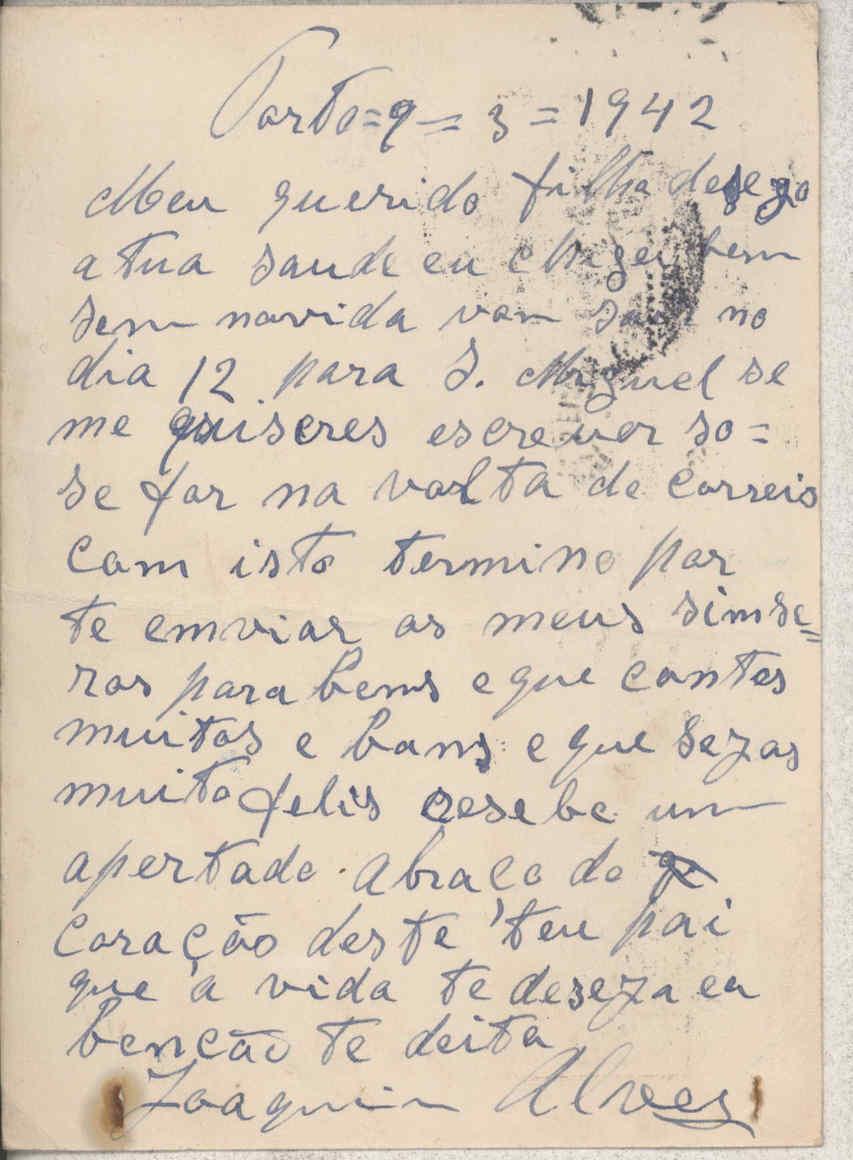 Porto=9=3=1942
Meu querido filho desezo
a tua saude eu chegei bem
sem novida vom no
dia 12 para S. Miguel se
me quiseres escrever so=
se for na volta do correio
com isto termino por
te emviar os meus simse=
ros parabens e que contes
muitos e bons e que sezas
muito felis resebe um
apertado abraço do
coração deste teu pai
que a vida te deseza eu
benção te deita
Joaquim Alves